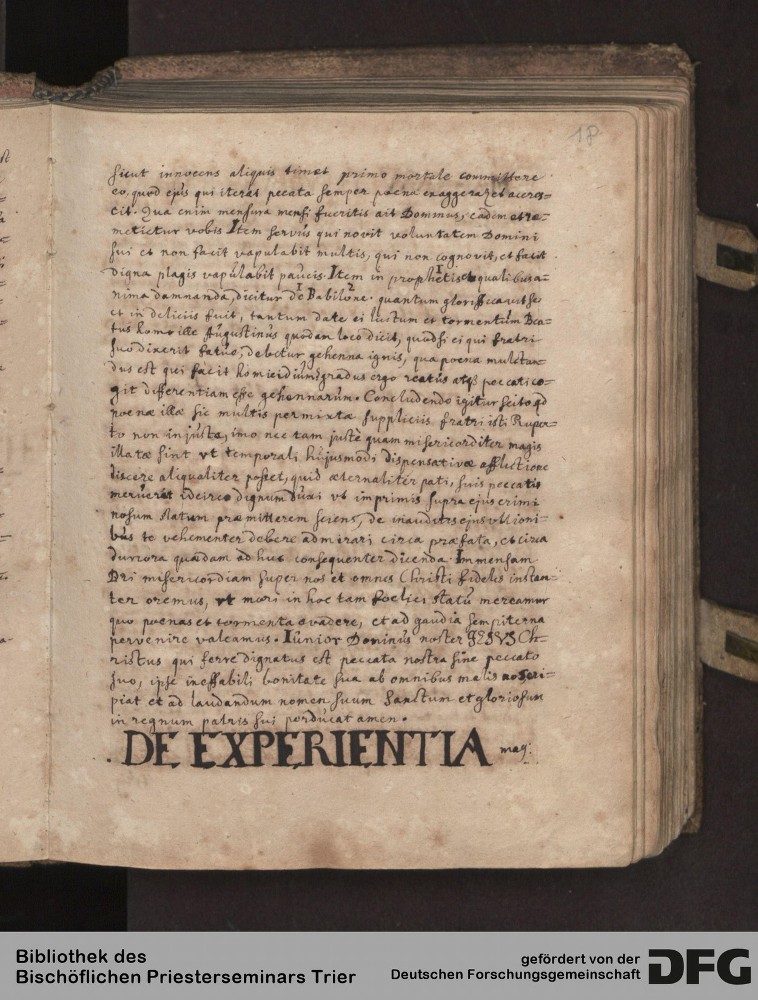 18
sicut innocens aliquis timet primo mortale committere
eo, quod ejus qui iterat pecata semper poena exaggerat et accres=
cit. Qua enim mensura mensi fueritis ait Dominus, eadem et re=
metietur vobis Item servus qui novit voluntatem Domini
sui et non facit vapulabit multis, qui non cognovit, et facit
digna plagis vapulabit paucis. Item in prophetis qualibus a=
nima damnanda, dicitur de Babilone. quantum glorificavit se
et in deliciis fuit, tantum date ei luctum et tormentum Bea=
tus homo ille Augustinus quodam loco dicit, quod si ei qui fratri
suo dixerit fatuo, debetur gehenna ignis, qua poena multan=
dus est qui facit homicidium, gradus ergo reatus atq3 peccati co=
git differentiam esse gehennarum. Concludendo igitur scito qd
poenae illae sic multis permixtae suppliciis fratri isti Ruper=
to non injuste, imo nec tam juste quam misericorditer magis
illatae sint vt temporali hujusmodi dispensativae afflictione
discere aliqualiter posset, quid aeternaliter pati, suis peccatis
meruerat idcirco dignum duxi vt imprimis supra ejus crimi
nosum statum praemitterem sciens, de inauditis ejus vltioni=
bus te vehementer debere admirari circa praefata, et circa
duriora quaedam ad huc consequenter dicenda. Immensam
Dei misericordiam super nos et omnes Christi fideles instan=
ter oremus, vt mori in hoc tam foelici statu mereamur
quo poenas et tormenta evadere, et ad gaudia sempiterna
pervenire valeamus. Iunior Dominus noster JESVS Ch=
ristus qui ferre dignatus est peccata nostra sine peccato
suo, ipse ineffabili bonitate sua ab omnibus malis nos eri=
piat et ad laudandum nomen suum Sanctum et gloriosum
in regnum patris sui perducat amen.
. DE EXPERIENTIA mag:
Bibliothek des
Bischöflichen Priesterseminars Trier
gefördert von der
Deutschen Forschungsgemeinschaft DFG